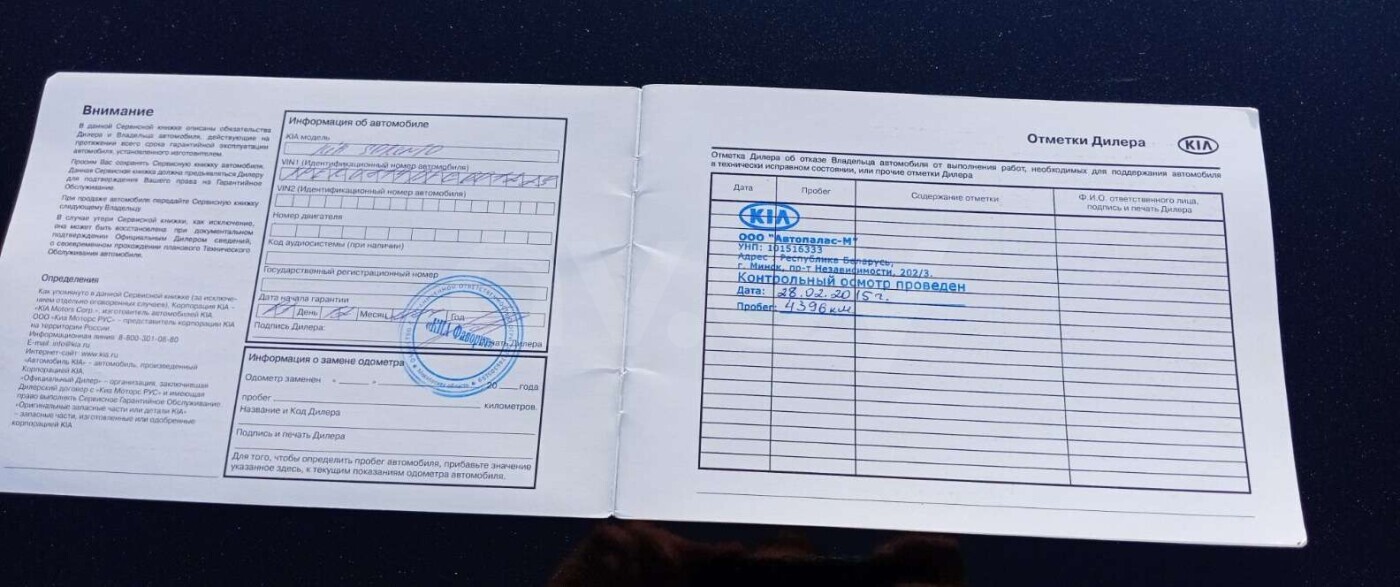 Внимание
В данной Сервисной книжке описаны обязательства
Дилера и Владельца автомобиля, действующие на
протяжении всего срока гарантийной эксплуатации
автомобиля, установленного изготовителем.
Просим Вас сохранять Сервисную книжку автомобиля.
Данная Сервисная книжка должна предъявляться Дилеру
для подтверждения Вашего права на Гарантийное
Обслуживание.
При продаже автомобиля передайте Сервисную книжку
следующему Владельцу.
В случае утери Сервисной книжки, как исключение,
она может быть восстановлена при документальном
подтверждении Официальным Дилером сведений,
о своевременном прохождении планового Технического
Обслуживания автомобиля.
Определения
Как упомянуто в данной Сервисной книжке (за исключе-
нием отдельно оговоренных случаев), Корпорация KIA -
«KIA Motors Corp.», изготовитель автомобилей KIA.
ООО «Киа Моторс РУС» – представитель корпорации KIA
на территории России.
Информационная линия: 8-800-301-08-80
E-mail: info@kia.ru
Интернет-сайт: www.kia.ru
«Автомобиль KIA» – автомобиль, произведенный
Корпорацией KIA.
«Официальный Дилер» – организация, заключившая
Дилерский договор с «Киа Моторс РУС» и имеющая
право выполнять Сервисное Гарантийное Обслуживание.
«Оригинальные запасные части или детали KIA»
– запасные части, изготовленные или одобренные
корпорацией KIA
Информация об автомобиле
KIA модель
KIA SORENTO
VIN1 (Идентификационный номер автомобиля)
VIN2 (Идентификационный номер автомобиля)
Номер двигателя
Код аудиосистемы (при наличии)
Государственный регистрационный номер
Дата начала гарантии
День Месяц Год
Подпись Дилера: Печать Дилера
«КИА Фаворит»
Информация о замене одометра
Одометр заменен « » 20 года
пробег километров.
Название и Код Дилера
Подпись и печать Дилера
Для того, чтобы определить пробег автомобиля, прибавьте значение
указанное здесь, к текущим показаниям одометра автомобиля.
Отметки Дилера KIA
Отметка Дилера об отказе Владельца автомобиля от выполнения работ, необходимых для поддержания автомобиля
в технически исправном состоянии, или прочие отметки Дилера
Дата Пробег Содержание отметки Ф.И.О. ответственного лица,
подпись и печать Дилера
KIA
ООО "Автопалас-М"
УНП: 101516333
Адрес : Республика Беларусь,
г. Минск, пр-т Независимости, 202/3.
Контрольный осмотр проведен
Дата: 28.02.2015г.
Пробег: 4396 км